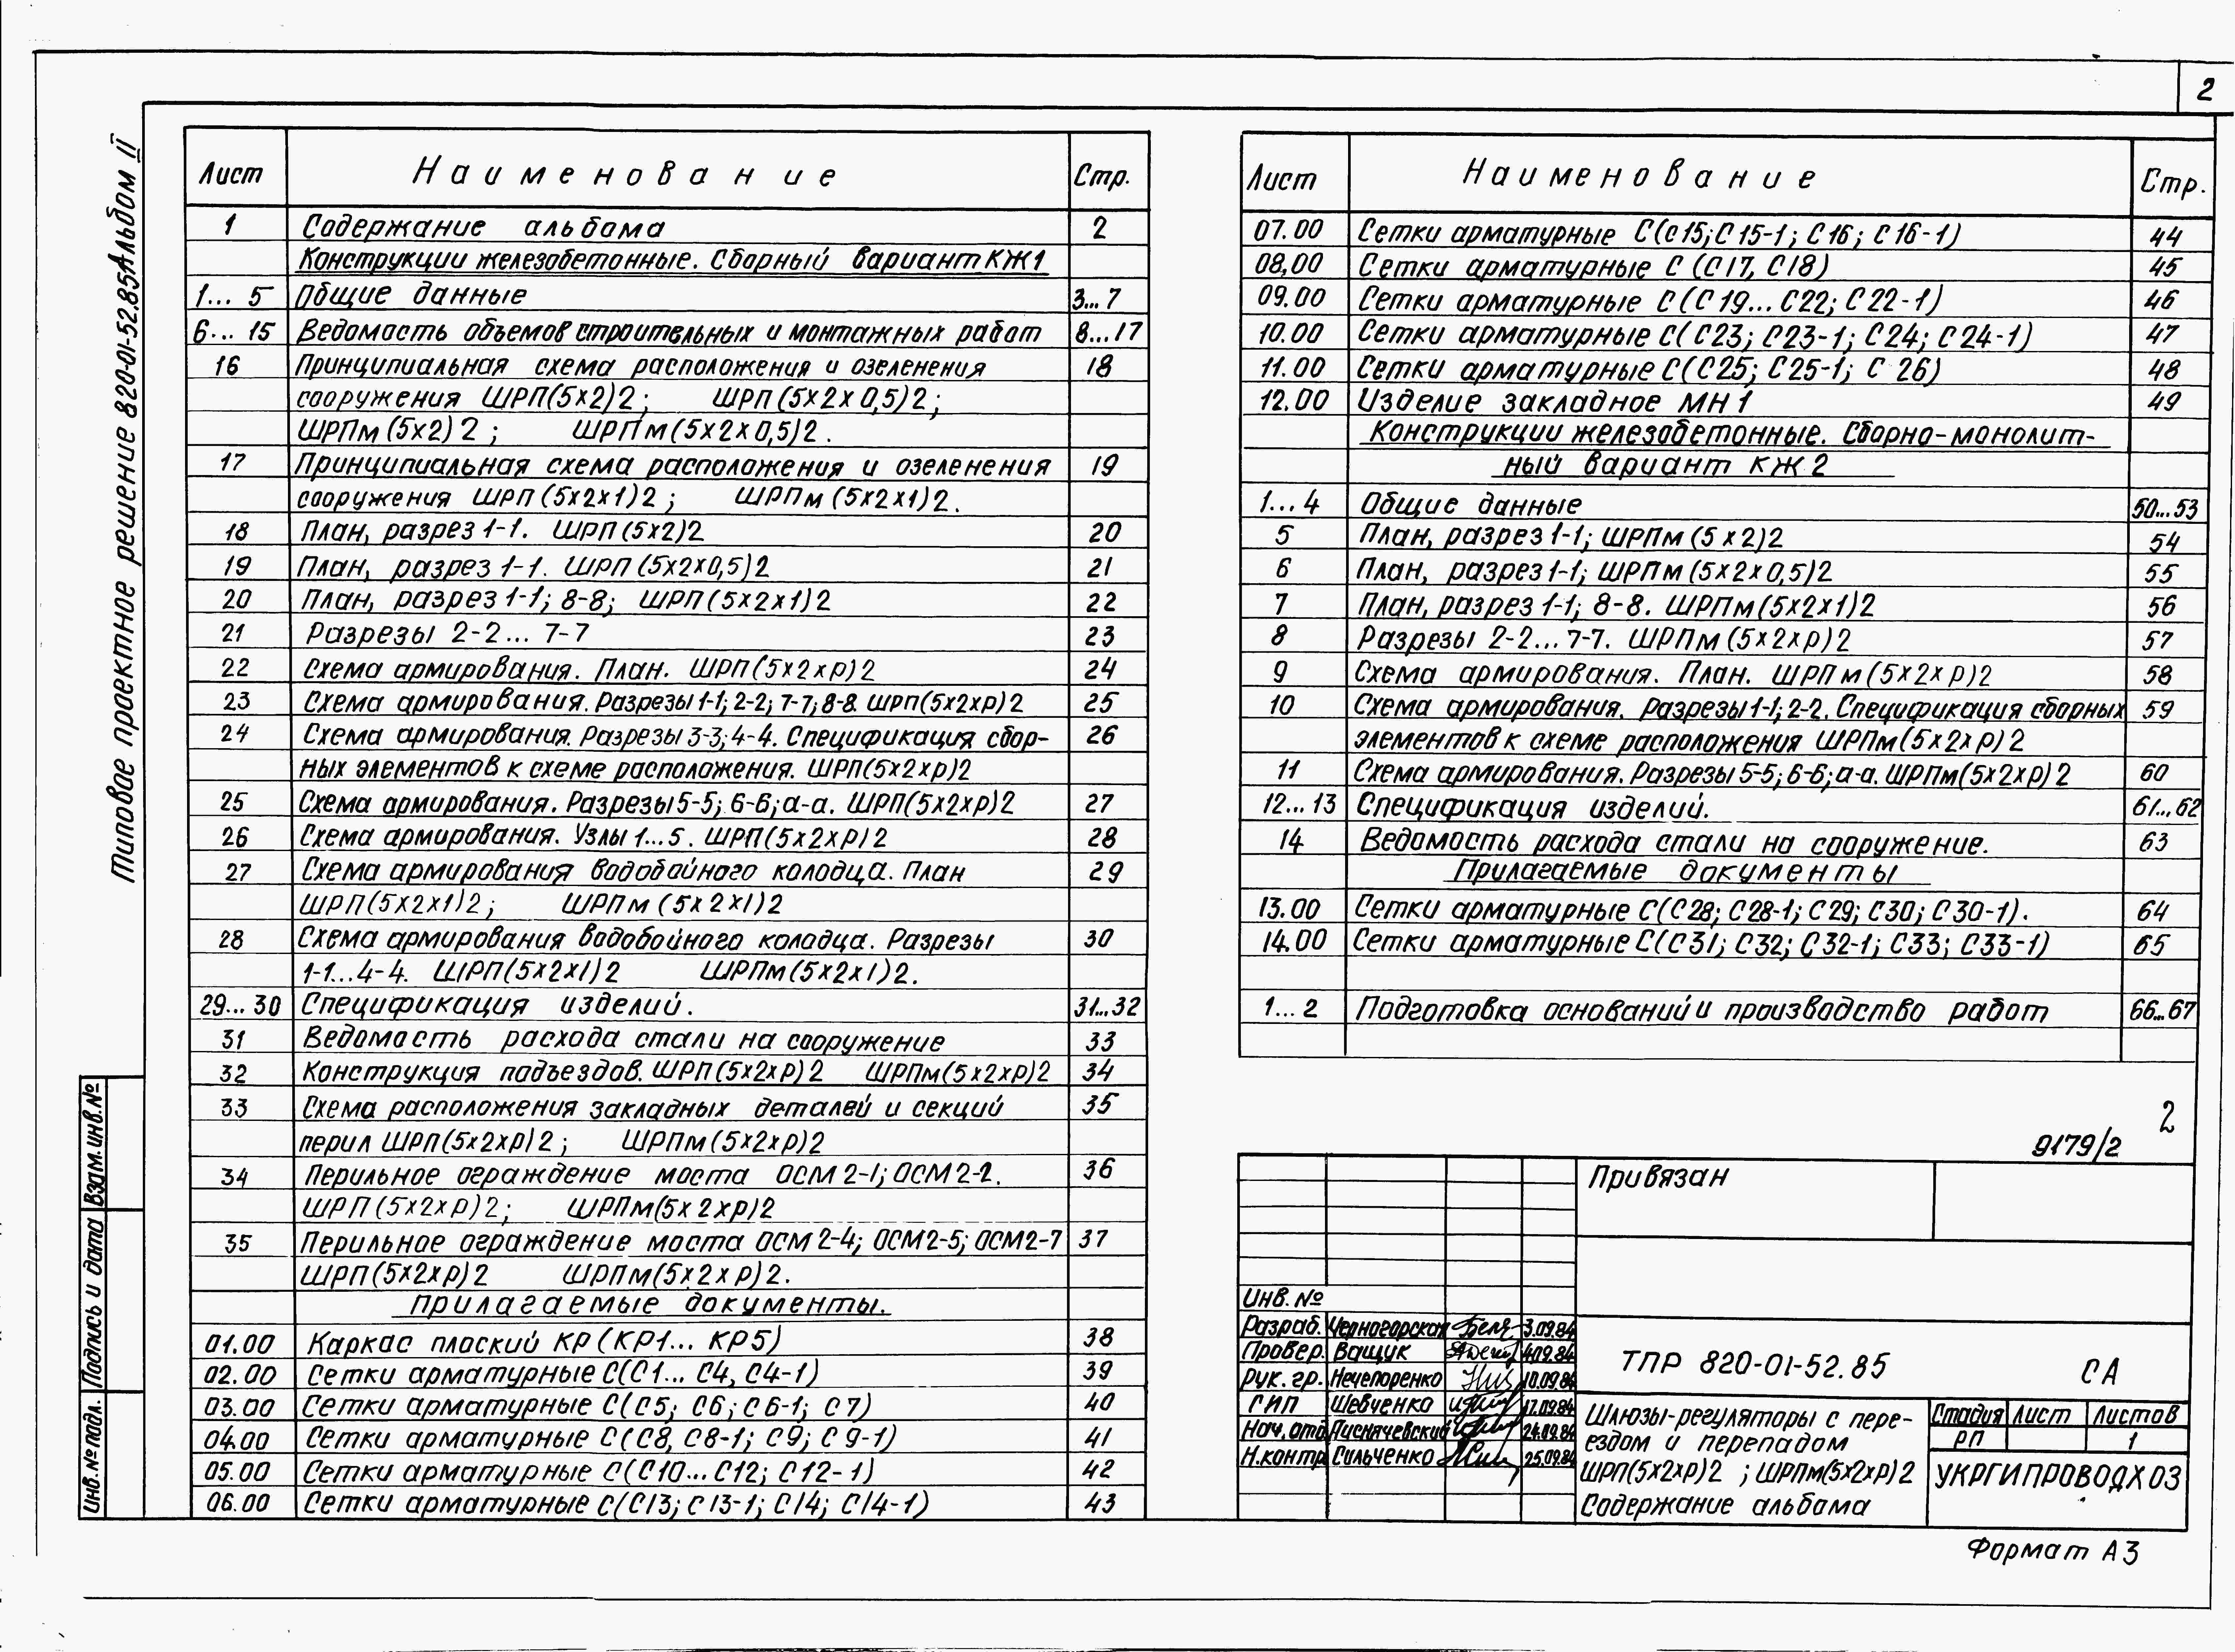 2
Типовое проектное решение 820-01-52.85 Альбом II
Лист Наименование Стр.
1 Содержание альбома 2
Конструкции железобетонные. Сборный вариант КЖ1
1... 5 Общие данные 3...7
6... 15 Ведомость объемов строительных и монтажных работ 8...17
16 Принципиальная схема расположения и озеленения 18
сооружения ШРП(5х2)2; ШРП(5х2х0,5)2;
ШРПм(5х2)2; ШРПм(5х2х0,5)2.
17 Принципиальная схема расположения и озеленения 19
сооружения ШРП(5х2х1)2; ШРПм(5х2х1)2.
18 План, разрез 1-1. ШРП(5х2)2 20
19 План, разрез 1-1. ШРП(5х2х0,5)2 21
20 План, разрез 1-1; 8-8; ШРП(5х2х1)2 22
21 Разрезы 2-2... 7-7 23
22 Схема армирования. План. ШРП(5х2хр)2 24
23 Схема армирования. Разрезы 1-1; 2-2; 7-7; 8-8. ШРП(5х2хр)2 25
24 Схема армирования. Разрезы 3-3; 4-4. Спецификация сбор- 26
ных элементов к схеме расположения. ШРП(5х2хр)2
25 Схема армирования. Разрезы 5-5; 6-6; а-а. ШРП(5х2хр)2 27
26 Схема армирования. Узлы 1...5. ШРП(5х2хр)2 28
27 Схема армирования водобойного колодца. План 29
ШРП(5х2х1)2; ШРПм(5х2х1)2
28 Схема армирования водобойного колодца. Разрезы 30
1-1...4-4. ШРП(5х2х1)2 ШРПм(5х2х1)2.
29... 30 Спецификация изделий. 31...32
31 Ведомость расхода стали на сооружение 33
32 Конструкция подъездов. ШРП(5х2хр)2 ШРПм(5х2хр)2 34
33 Схема расположения закладных деталей и секций 35
перил ШРП(5х2хр)2; ШРПм(5х2хр)2
34 Перильное ограждение моста ОСМ 2-1; ОСМ 2-2. 36
ШРП(5х2хр)2; ШРПм(5х2хр)2
35 Перильное ограждение моста ОСМ 2-4; ОСМ2-5; ОСМ2-7 37
ШРП(5х2хр)2 ШРПм(5х2хр)2.
Прилагаемые документы.
01.00 Каркас плоский КР (КР1... КР5) 38
02.00 Сетки арматурные С(С1... С4, С4-1) 39
03.00 Сетки арматурные С(С5; С6; С6-1; С7) 40
04.00 Сетки арматурные С(С8, С8-1; С9; С9-1) 41
05.00 Сетки арматурные С(С10...С12; С12-1) 42
06.00 Сетки арматурные С(С13; С13-1; С14; С14-1) 43
Лист Наименование Стр.
07.00 Сетки арматурные С(С15; С15-1; С16; С16-1) 44
08,00 Сетки арматурные С (С17, С18) 45
09.00 Сетки арматурные С(С19...С22; С22-1) 46
10.00 Сетки арматурные С(С23; С23-1; С24; С24-1) 47
11.00 Сетки арматурные С(С25; С25-1; С 26) 48
12.00 Изделие закладное МН1 49
Конструкции железобетонные. Сборно-монолит-
ный вариант КЖ2
1...4 Общие данные 50...53
5 План, разрез 1-1; ШРПм(5х2)2 54
6 План, разрез 1-1; ШРПм(5х2х0,5)2 55
7 План, разрез 1-1; 8-8. ШРПм(5х2х1)2 56
8 Разрезы 2-2... 7-7. ШРПм(5х2хр)2 57
9 Схема армирования. План. ШРПм(5х2хр)2 58
10 Схема армирования. Разрезы 1-1; 2-2. Спецификация сборных 59
элементов к схеме расположения ШРПм(5х2хр)2
11 Схема армирования. Разрезы 5-5; 6-6; а-а. ШРПм(5х2хр)2 60
12...13 Спецификация изделий. 61...62
14 Ведомость расхода стали на сооружение. 63
Прилагаемые документы
13.00 Сетки арматурные С(С28; С28-1; С29; С30; С30-1). 64
14.00 Сетки арматурные С(С31; С32; С32-1; С33; С33-1) 65
1...2 Подготовка оснований и производство работ 66...67
2
9179/2
Привязан
Инв. №
Разраб. Черногорская 3.09.84
Провер. Ващук 4.09.84
Рук. гр. Нечепоренко 10.09.84
ГИП Шевченко 17.09.84
Нач. отд. Писнячевский 24.09.84
Н.контр. Сильченко 25.09.84
ТПР 820-01-52.85 СА
Шлюзы-регуляторы с пере-
ездом и перепадом
ШРП(5х2хр)2 ; ШРПм(5х2хр)2
Содержание альбома
Стадия Лист Листов
РП 1
УКРГИПРОВОДХОЗ
Формат А3
Инв. № подл. Подпись и дата Взам. инв. №